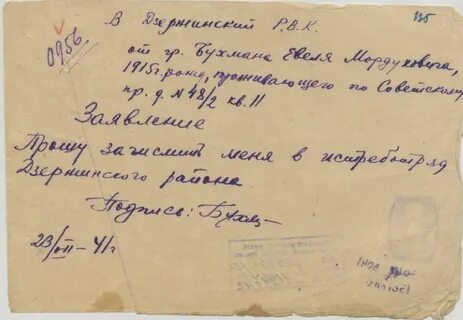 135
0956.
В Дзержинский Р.В.К.
от гр. Бухмана Евеля Мордуховича,
1915г. рожд., проживающего по Советскому
пр. д. №48/2 кв. 11
Заявление
Прошу зачислить меня в истреботряд
Дзержинского района.
Подпись: Бухм
23/VII-41г